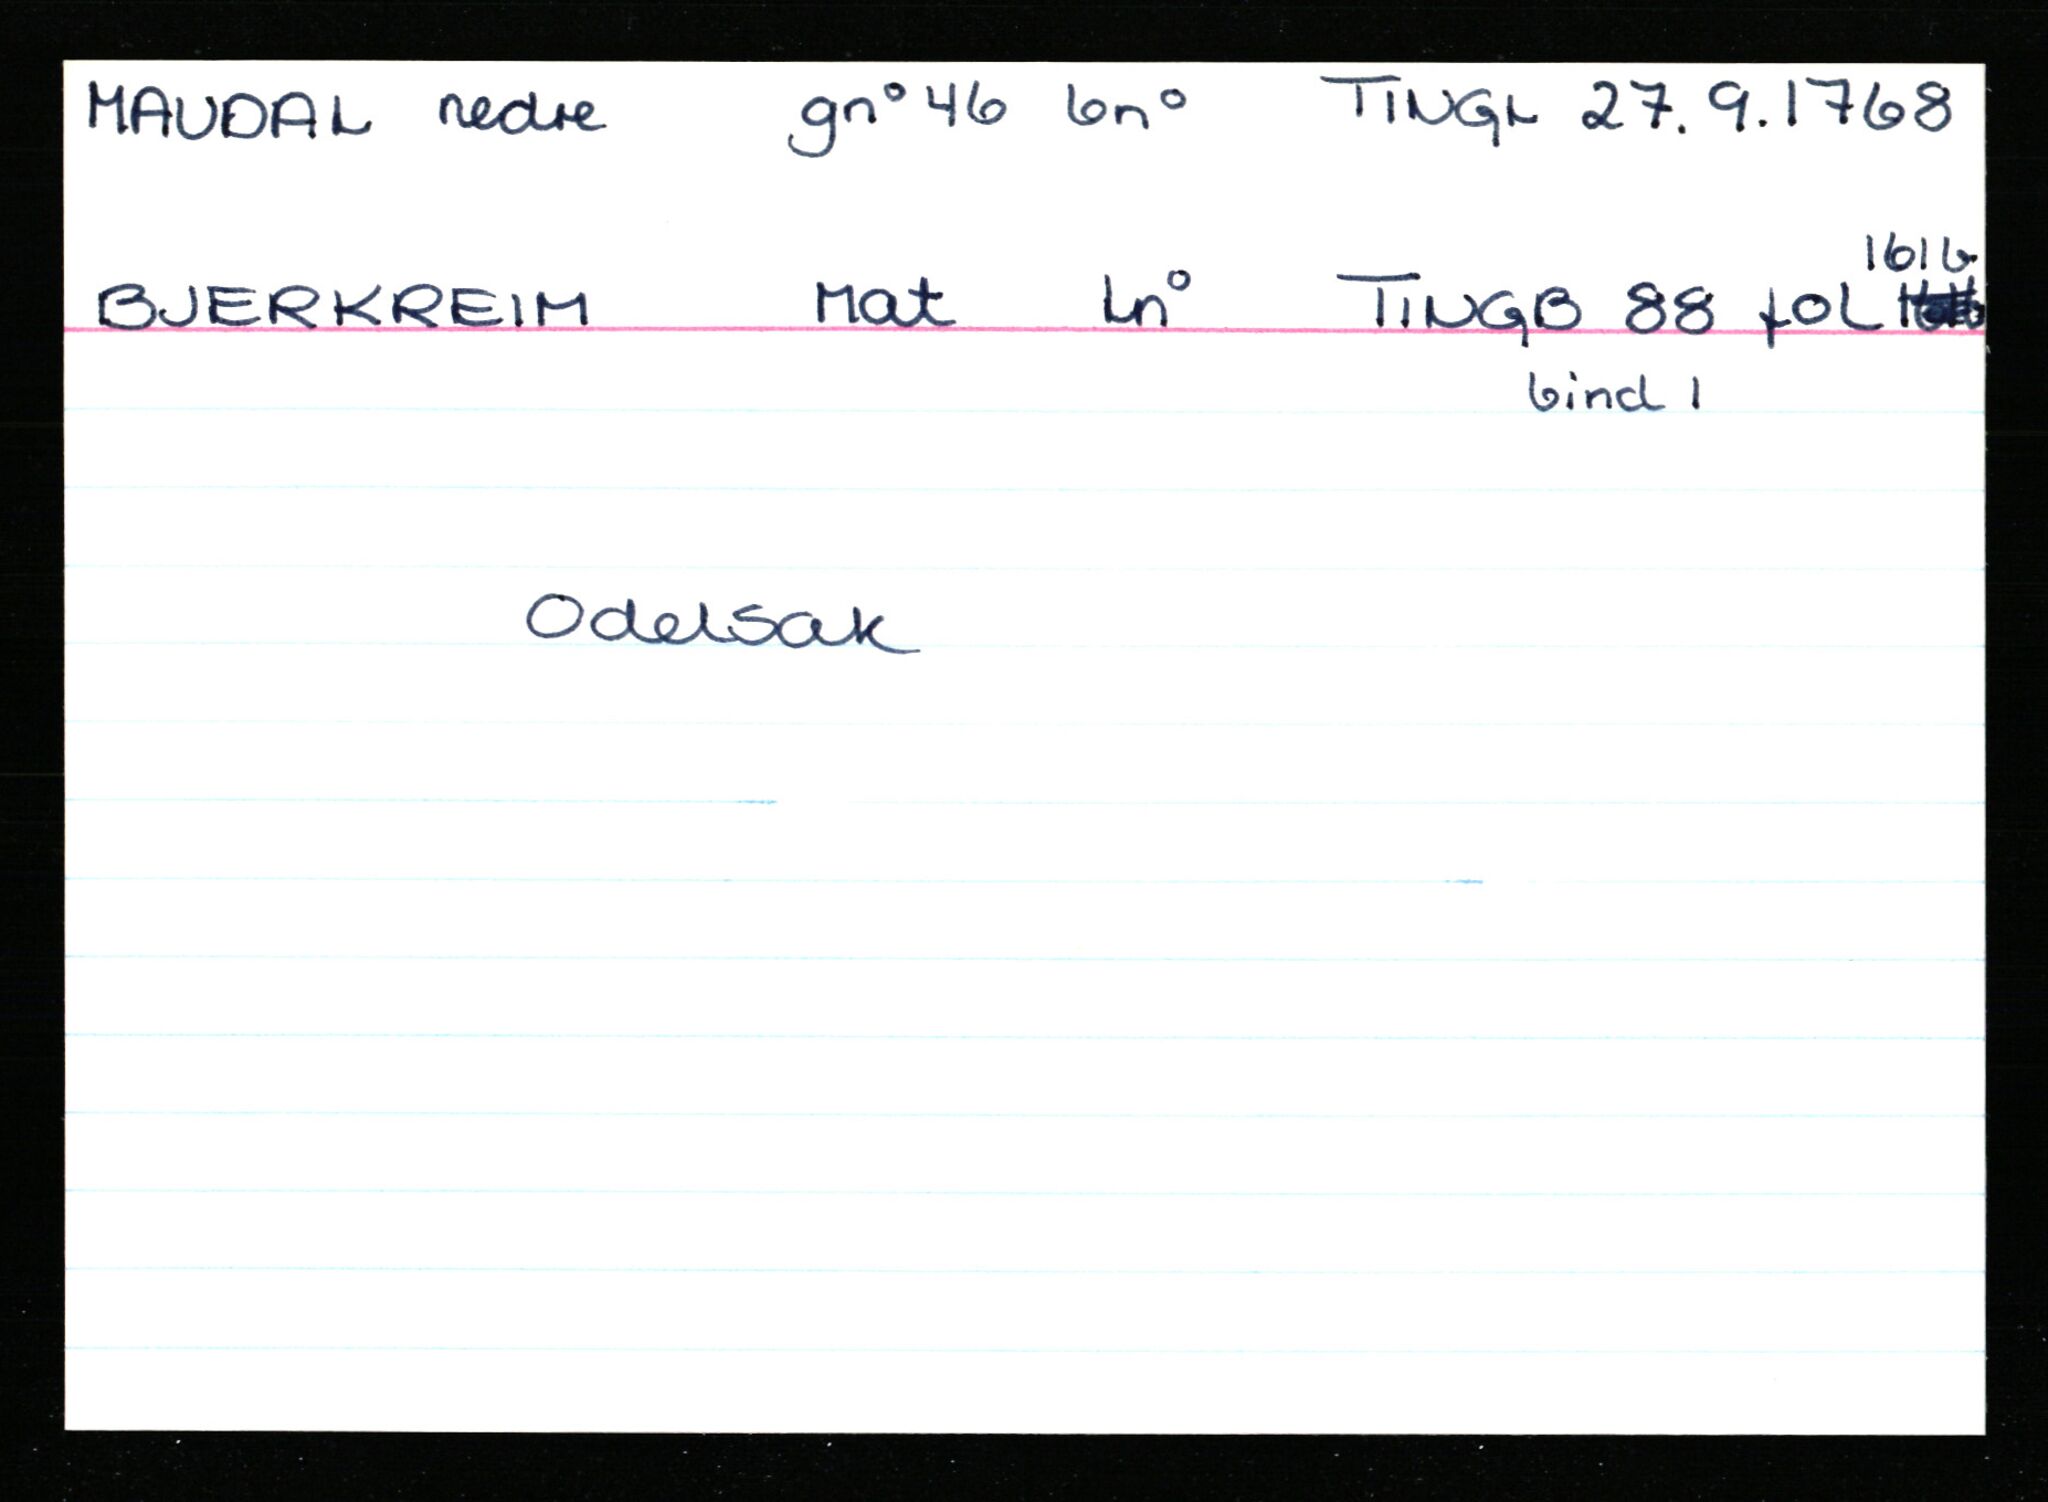 MAUDAL nedre gn° 46 bn° TINGL 27.9.1768
161b
BJERKREIM Mat Ln° TINGB 88 fOL
bind 1
Odelsak